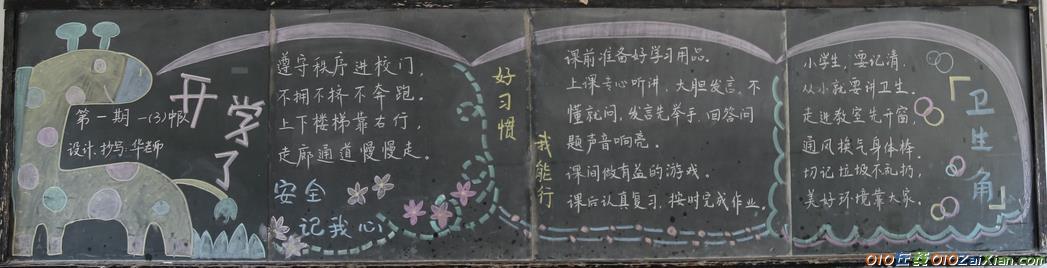 第一期一(3)中队
设计、抄写:华老师
开学了
遵守秩序进校门,
不拥不挤不奔跑。
上下楼梯靠右行,
走廊通道慢慢走。
安全
记我心
好习惯
我能行
课前准备好学习用品.
上课专心听讲,大胆发言,不
懂就问,发言先举手,回答问
题声音响亮。
课间做有益的游戏。
课后认真复习,按时完成作业。
小学生,要记清.
从小就要讲卫生。
走进教室先开窗,
通风换气身体棒.
切记垃圾不乱扔,
美好环境靠大家.
「卫生角」
010在线010ZaiXian.com